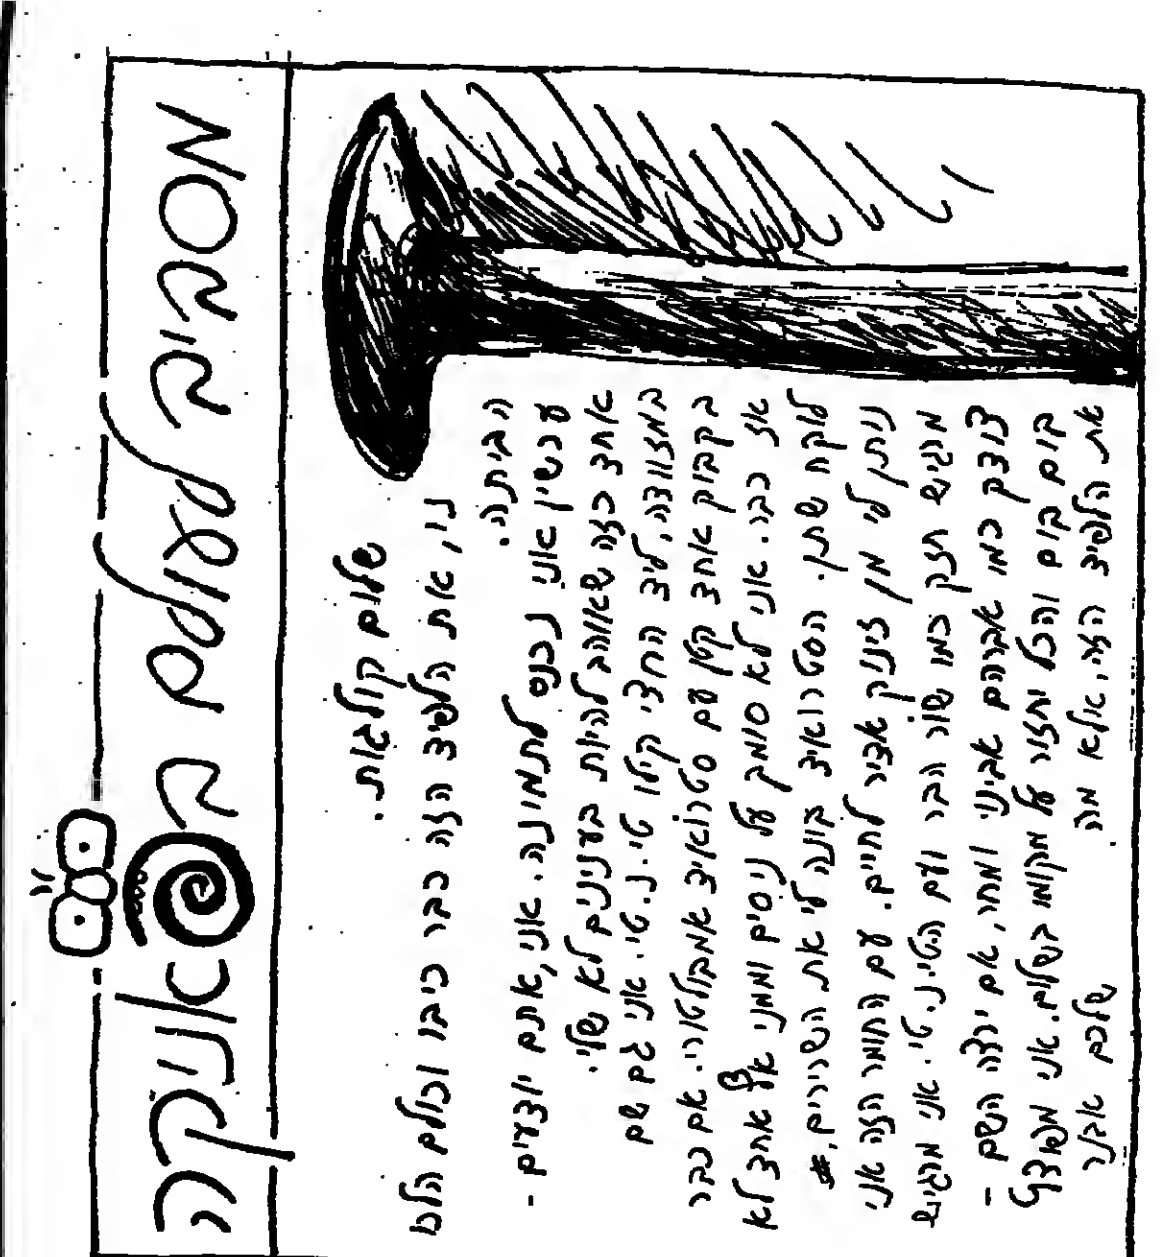 מסביב לעולם בפאניקה
שלום קולגות.
ני, את הלפיד הזה כבר כיבו וכולם הלכו
הביתה.
עכשיו אני נכנס לתמונה. אני, אתם יודעים -
אחד כזה שאוהב להיות בענינים לא שלי.
במזוודה, ליד החצי קילו טי.נ.טי. אני גם שם
בקבוק אחד קטן עם סטרואיד אמבולטורי. אם כבר
אז כבר. אני לא סומך על ניסים וממני אף אחד לא
לוקח שתן. הסטרואיד בונה לי את השרירים,
נותן לי מן זינוק אדיר לחיים. עם החומר הזה אני
מרגיש חזק כמו שור הבר ועם הטי.נ.טי. אני מרגיש
צודק כמו אברהם אבינו ומחר, אם ירצה השם -
בום בום והכל יחזור על מקומו בשלום. אני
את הלפיד הזה, אלא מה שלכם אבנר